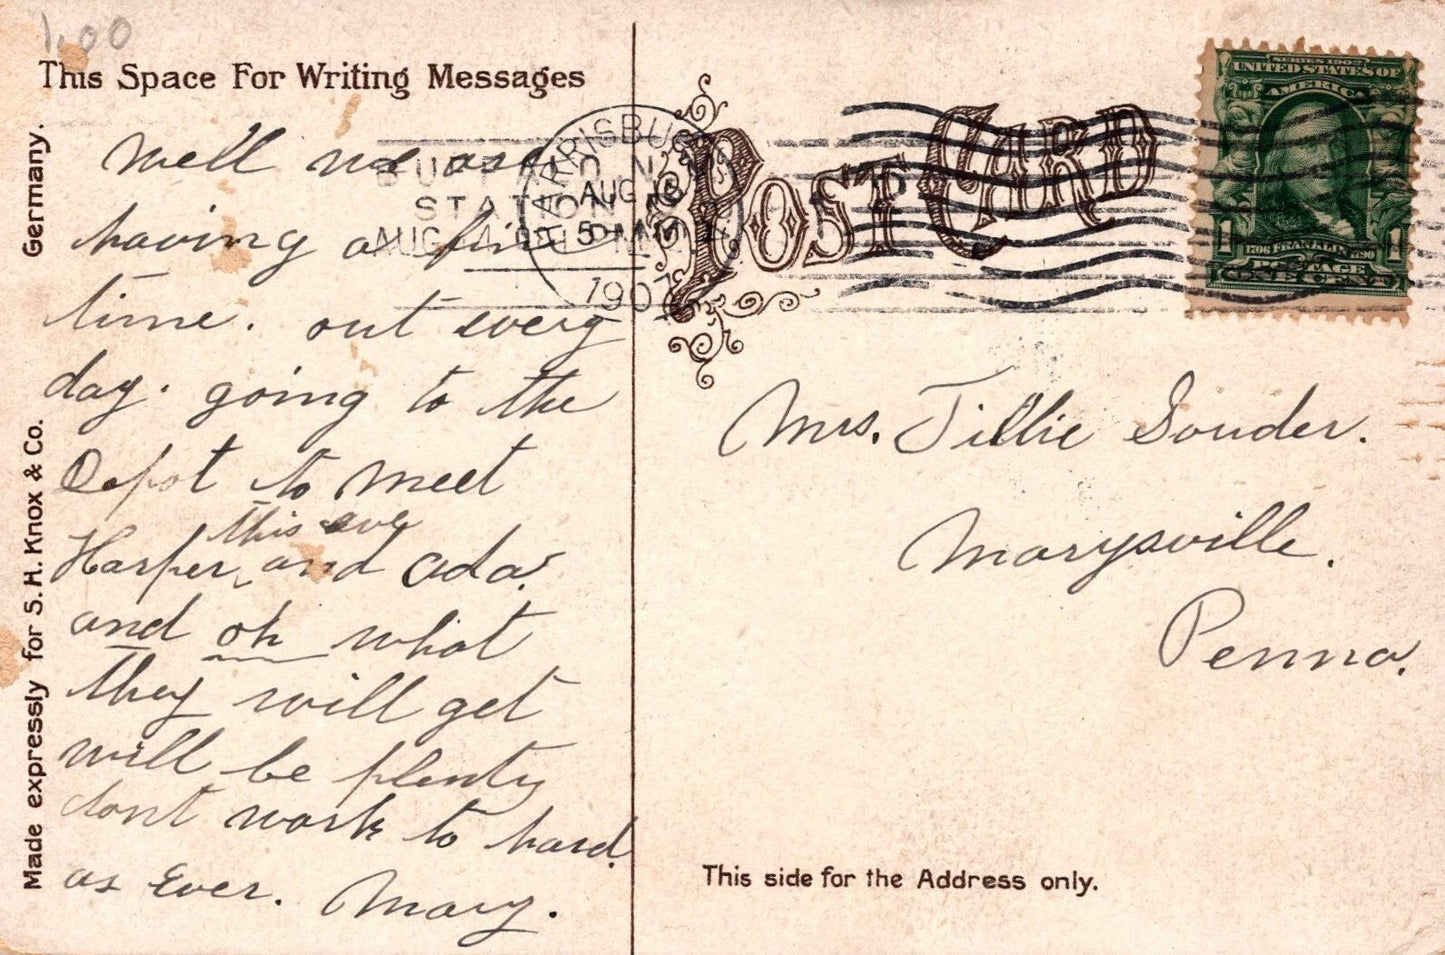 1.00
This Space For Writing Messages
Well we are
having a fine
time. out every
day. going to the
Depot to meet
this eve
Harper, and Ada.
and oh what
they will get
will be plenty
dont work to hard.
as Ever. Mary.
Germany.
Made expressly for S. H. Knox & Co.
STATION
AUG
HARRISBURG
AUG
5-PM
1907
POST CARD
SERIES 1902
UNITED STATES OF
AMERICA
1 1
FRANKLIN
POSTAGE
Mrs. Tillie Souder.
Marysville.
Penna.
This side for the Address only.